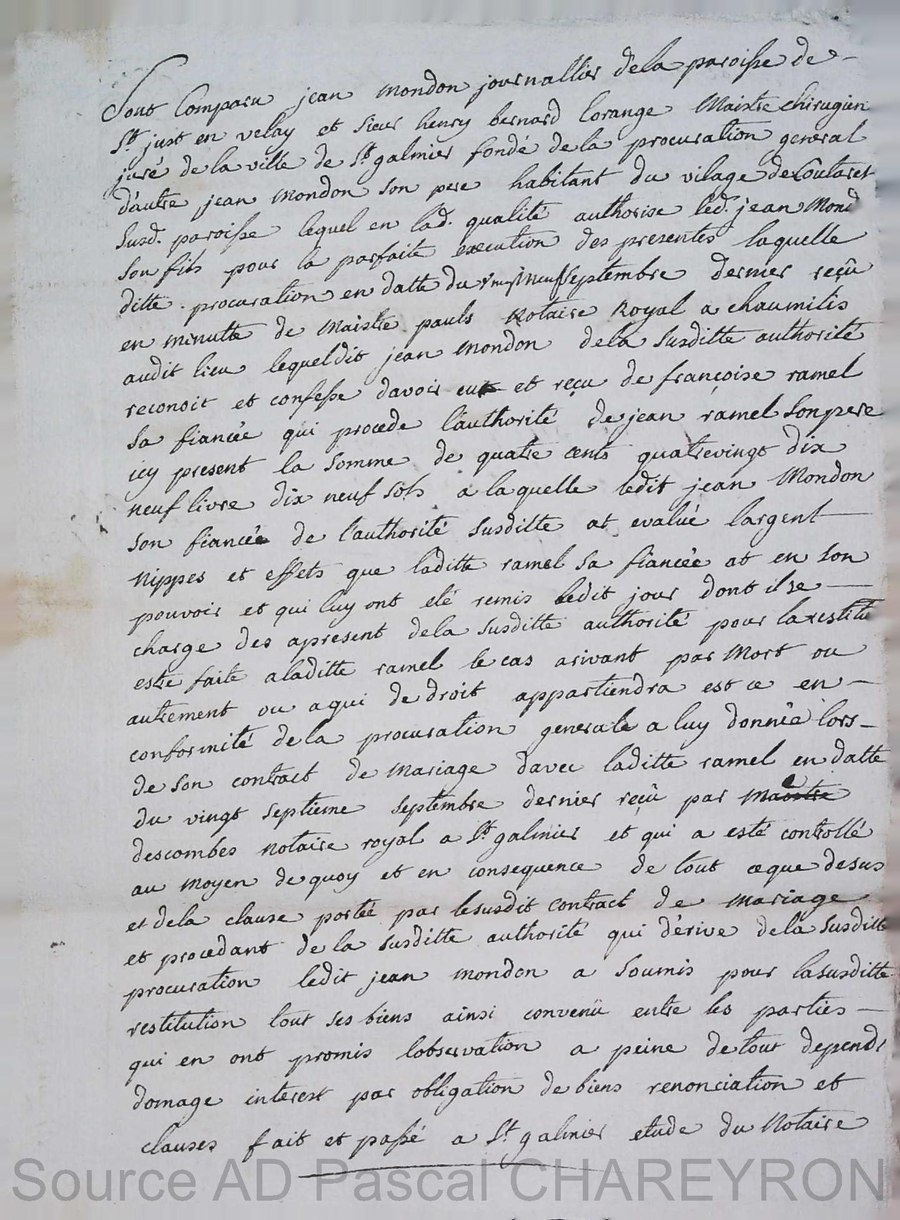 Sont Comparu jean Mondon journallier dela paroisse de
St. just en velay et sieur henry bernard lorange Maistre chirugien
juré de la ville de St. galmier fondé de la procuration general
d'autre jean Mondon son pere habitant du vilage de Coutaret
susd. paroisse lequel en lad. qualité authorise led. jean Mond
son fils pour la parfaite execution des presentes laquelle
ditte procuration en datte du vingt Neuf septembre dernier reçû
en minutte de Maistre pauls Notaire Royal a chaumilis
audit lieu lequeldit jean Mondon dela susditte authorité
reconoit et confesse davoir eut et reçu de françoise ramel
sa fiancée qui procede l'authorité de jean ramel son pere
icy present la somme de quatre cents quatrevingt dix
neuf livre dix neuf sols a laquelle ledit jean Mondon
son fiancée de l'authorité susditte at evalué largent
Nippes et effets que laditte ramel sa fiancée at en son
pouvoir et qui luy ont été remis ledit jour dont il se
charge des apresent dela susditte authorité pour la restitu
estre faite aladitte ramel le cas arivant par Mort ou
autrement ou a qui de droit appartiendra est ce en
conformité dela procuration generale a luy donnée lors
de son contract de Mariage davec laditte ramel en datte
du vingt septieme septembre dernier reçû par Maistre
descombes Notaire royal a St. galmier et qui a esté controllé
au Moyen de quoy et en consequence de tout ceque desus
et dela clause portée par lesusdit contract de Mariage
et procedant de la susditte authorité qui dérive dela susditte
procuration ledit jean Mondon a soumis pour lasusditte
restitution tout ses biens ainsi convenû entre les parties
qui en ont promis lobservation a peine de tout depends
domage interest par obligation de biens renonciation et
clauses fait et passé a St. galmier etude du Notaire
Source AD Pascal CHAREYRON